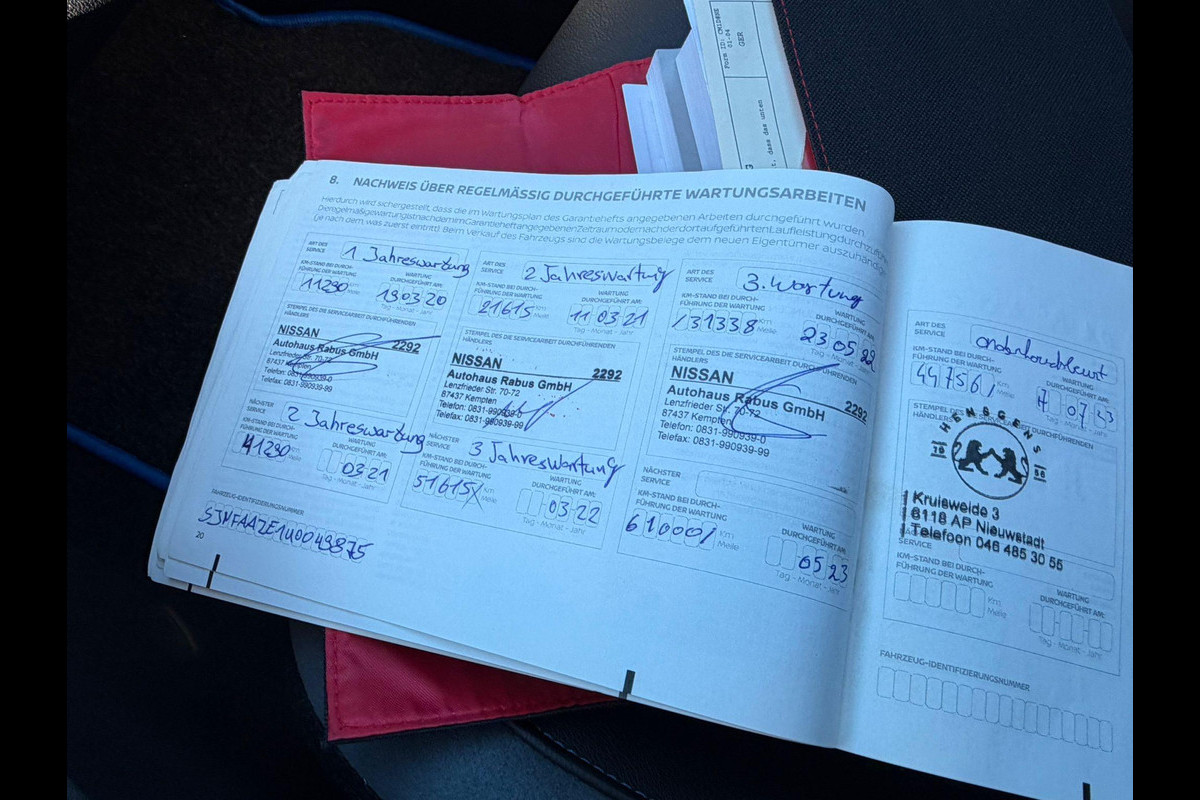 Form ID: CM1D4BE
01-04
GER
t, dass das unten
8. NACHWEIS ÜBER REGELMÄSSIG DURCHGEFÜHRTE WARTUNGSARBEITEN
Hierdurch wird sichergestellt, dass die im Wartungsplan des Garantiehefts angegebenen Arbeiten durchgeführt wurden.
(je nach dem, was zuerst eintritt). Beim Verkauf des Fahrzeugs sind die Wartungsbelege dem neuen Eigentümer auszuhändig
ART DES SERVICE 1. Jahreswartung
KM-STAND BEI DURCH-
FÜHRUNG DER WARTUNG
11290 Meile
WARTUNG
DURCHGEFÜHRT AM:
19 03 20
Tag - Monat - Jahr
STEMPEL DES DIE SERVICEARBEIT DURCHFÜHRENDEN
HÄNDLERS
NISSAN 2292
Autohaus Rabus GmbH
Lenzfrieder Str. 70-72
87437 Kempten
Telefon: 0831-990939-0
Telefax: 0831-990939-99
NÄCHSTER
SERVICE 2 Jahreswartung
KM-STAND BEI DURCH-
FÜHRUNG DER WARTUNG
41290 Meile
WARTUNG
DURCHGEFÜHRT AM:
03 21
Tag - Monat - Jahr
FAHRZEUG-IDENTIFIZIERUNGSNUMMER
SJNFAAZE1U0049875
20
ART DES
SERVICE 2 Jahreswartung
KM-STAND BEI DURCH-
FÜHRUNG DER WARTUNG
21615 Meile
WARTUNG
DURCHGEFÜHRT AM:
11 03 21
Tag - Monat - Jahr
STEMPEL DES DIE SERVICEARBEIT DURCHFÜHRENDEN
HÄNDLERS
NISSAN 2292
Autohaus Rabus GmbH
Lenzfrieder Str. 70-72
87437 Kempten
Telefon: 0831-990939-0
Telefax: 0831-990939-99
NÄCHSTER
SERVICE 3 Jahreswartung
KM-STAND BEI DURCH-
FÜHRUNG DER WARTUNG
51615 Km
Meile
WARTUNG
DURCHGEFÜHRT AM:
03 22
Tag - Monat - Jahr
ART DES
SERVICE 3. Wartung
KM-STAND BEI DURCH-
FÜHRUNG DER WARTUNG
/31338 Km
Meile
WARTUNG
DURCHGEFÜHRT AM:
23 05 22
Tag - Monat - Jahr
STEMPEL DES DIE SERVICEARBEIT DURCHFÜHRENDEN
HÄNDLERS
NISSAN 2292
Autohaus Rabus GmbH
Lenzfrieder Str. 70-72
87437 Kempten
Telefon: 0831-990939-0
Telefax: 0831-990939-99
NÄCHSTER
SERVICE
KM-STAND BEI DURCH-
FÜHRUNG DER WARTUNG
61000/ Km
Meile
WARTUNG
DURCHGEFÜHRT AM:
05 23
Tag - Monat - Jahr
ART DES
SERVICE onderhoudsbeurt
KM-STAND BEI DURCH-
FÜHRUNG DER WARTUNG
44756/ Km
Meile
WARTUNG
DURCHGEFÜHRT AM:
07 23
Tag - Monat - Jahr
STEMPEL DES DIE SERVICEARBEIT DURCHFÜHRENDEN
HÄNDLERS
HENSGENS
19 56
Kruisweide 3
6118 AP Nieuwstadt
Telefoon 046 485 30 55
SERVICE
KM-STAND BEI DURCH-
FÜHRUNG DER WARTUNG
Km
Meile
WARTUNG
DURCHGEFÜHRT AM:
Tag - Monat - Jahr
FAHRZEUG-IDENTIFIZIERUNGSNUMMER